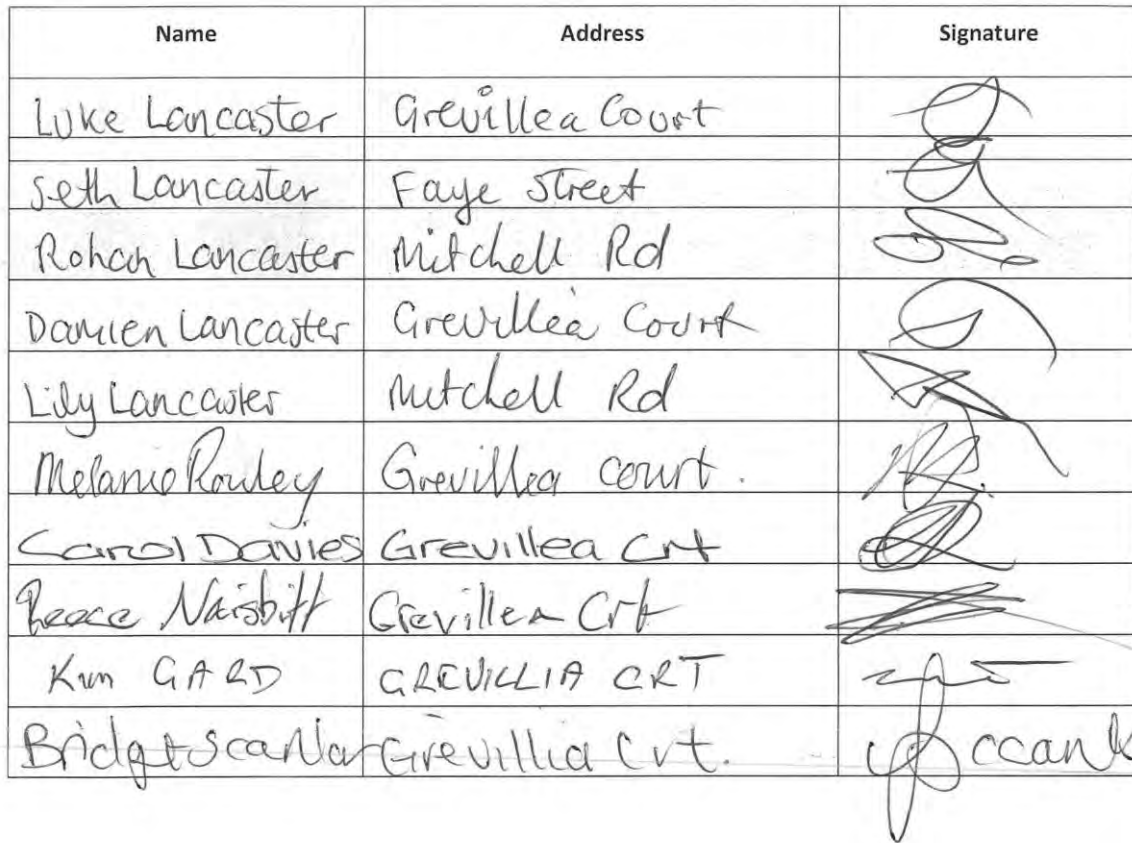 Name Address Signature
Luke Lancaster Grevillea Court
Seth Lancaster Faye Street
Rohan Lancaster Mitchell Rd
Damien Lancaster Grevillea Court
Lily Lancaster Mitchell Rd
Melanie Rowley Grevillea court.
Carol Davies Grevillea Crt
Reece Naisbitt Grevillea Crt
Kim GARD GREVILLIA CRT
Bridget Scanlan Grevillia Crt.